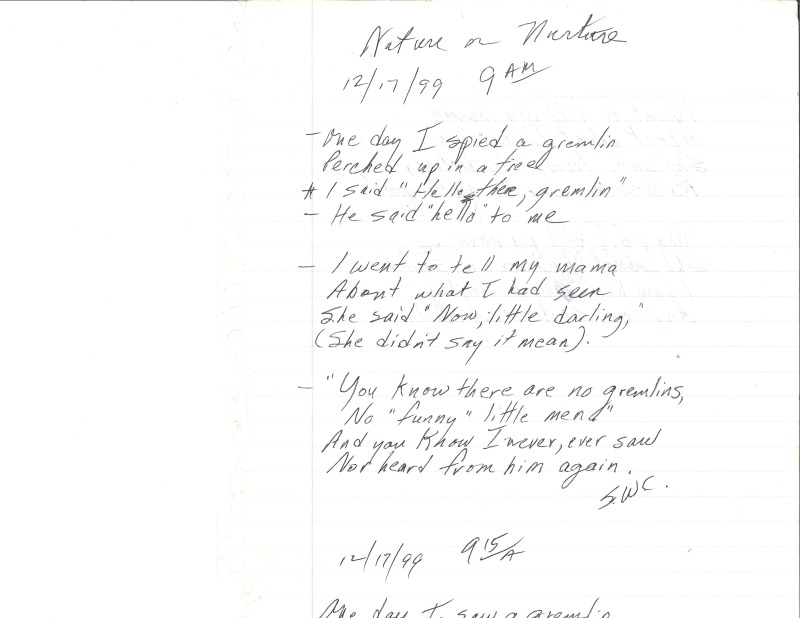 Nature or Nurture
12/17/99 9 AM
- One day I spied a gremlin
Perched up in a tree
* I said "Hello there, gremlin"
- He said "hello" to me
- I went to tell my mama
About what I had seen
She said "Now, little darling,"
(She didn't say it mean).
- "You know there are no gremlins,
No "funny" little men"
And you know I never, ever saw
Nor heard from him again.
S.W.C.
12/17/99 9 15/A
One day I saw a gremlin